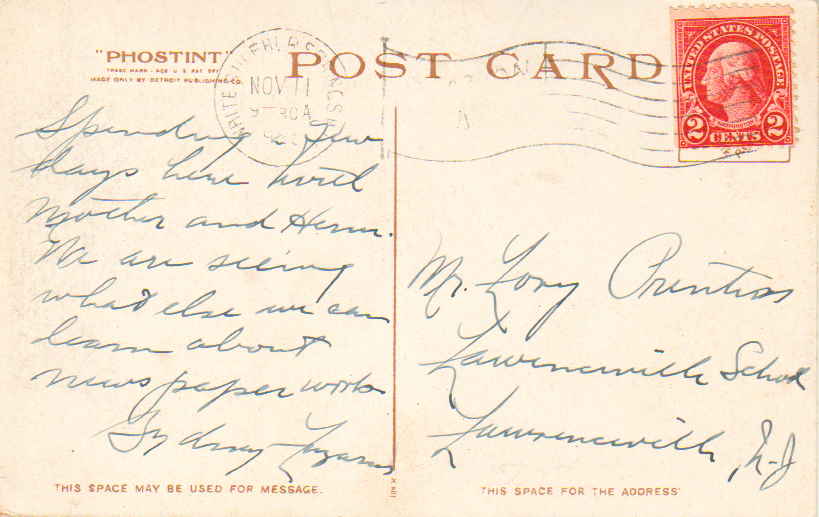 "PHOSTINT"
TRADE MARK - REG U S PAT OFF
MADE ONLY BY DETROIT PUBLISHING CO.
POST CARD
WHITE SULPHUR SPRINGS
NOV 11
9 - 30 A
UNITED STATES POSTAGE
2 CENTS 2
Spending a few
days here with
Mother and Herm.
We are seeing
what else we can
learn about
news paper work
Sydney Lazarus
Mr. Prentiss
Lawrenceville School
Lawrenceville, N-J
THIS SPACE MAY BE USED FOR MESSAGE.
THIS SPACE FOR THE ADDRESS